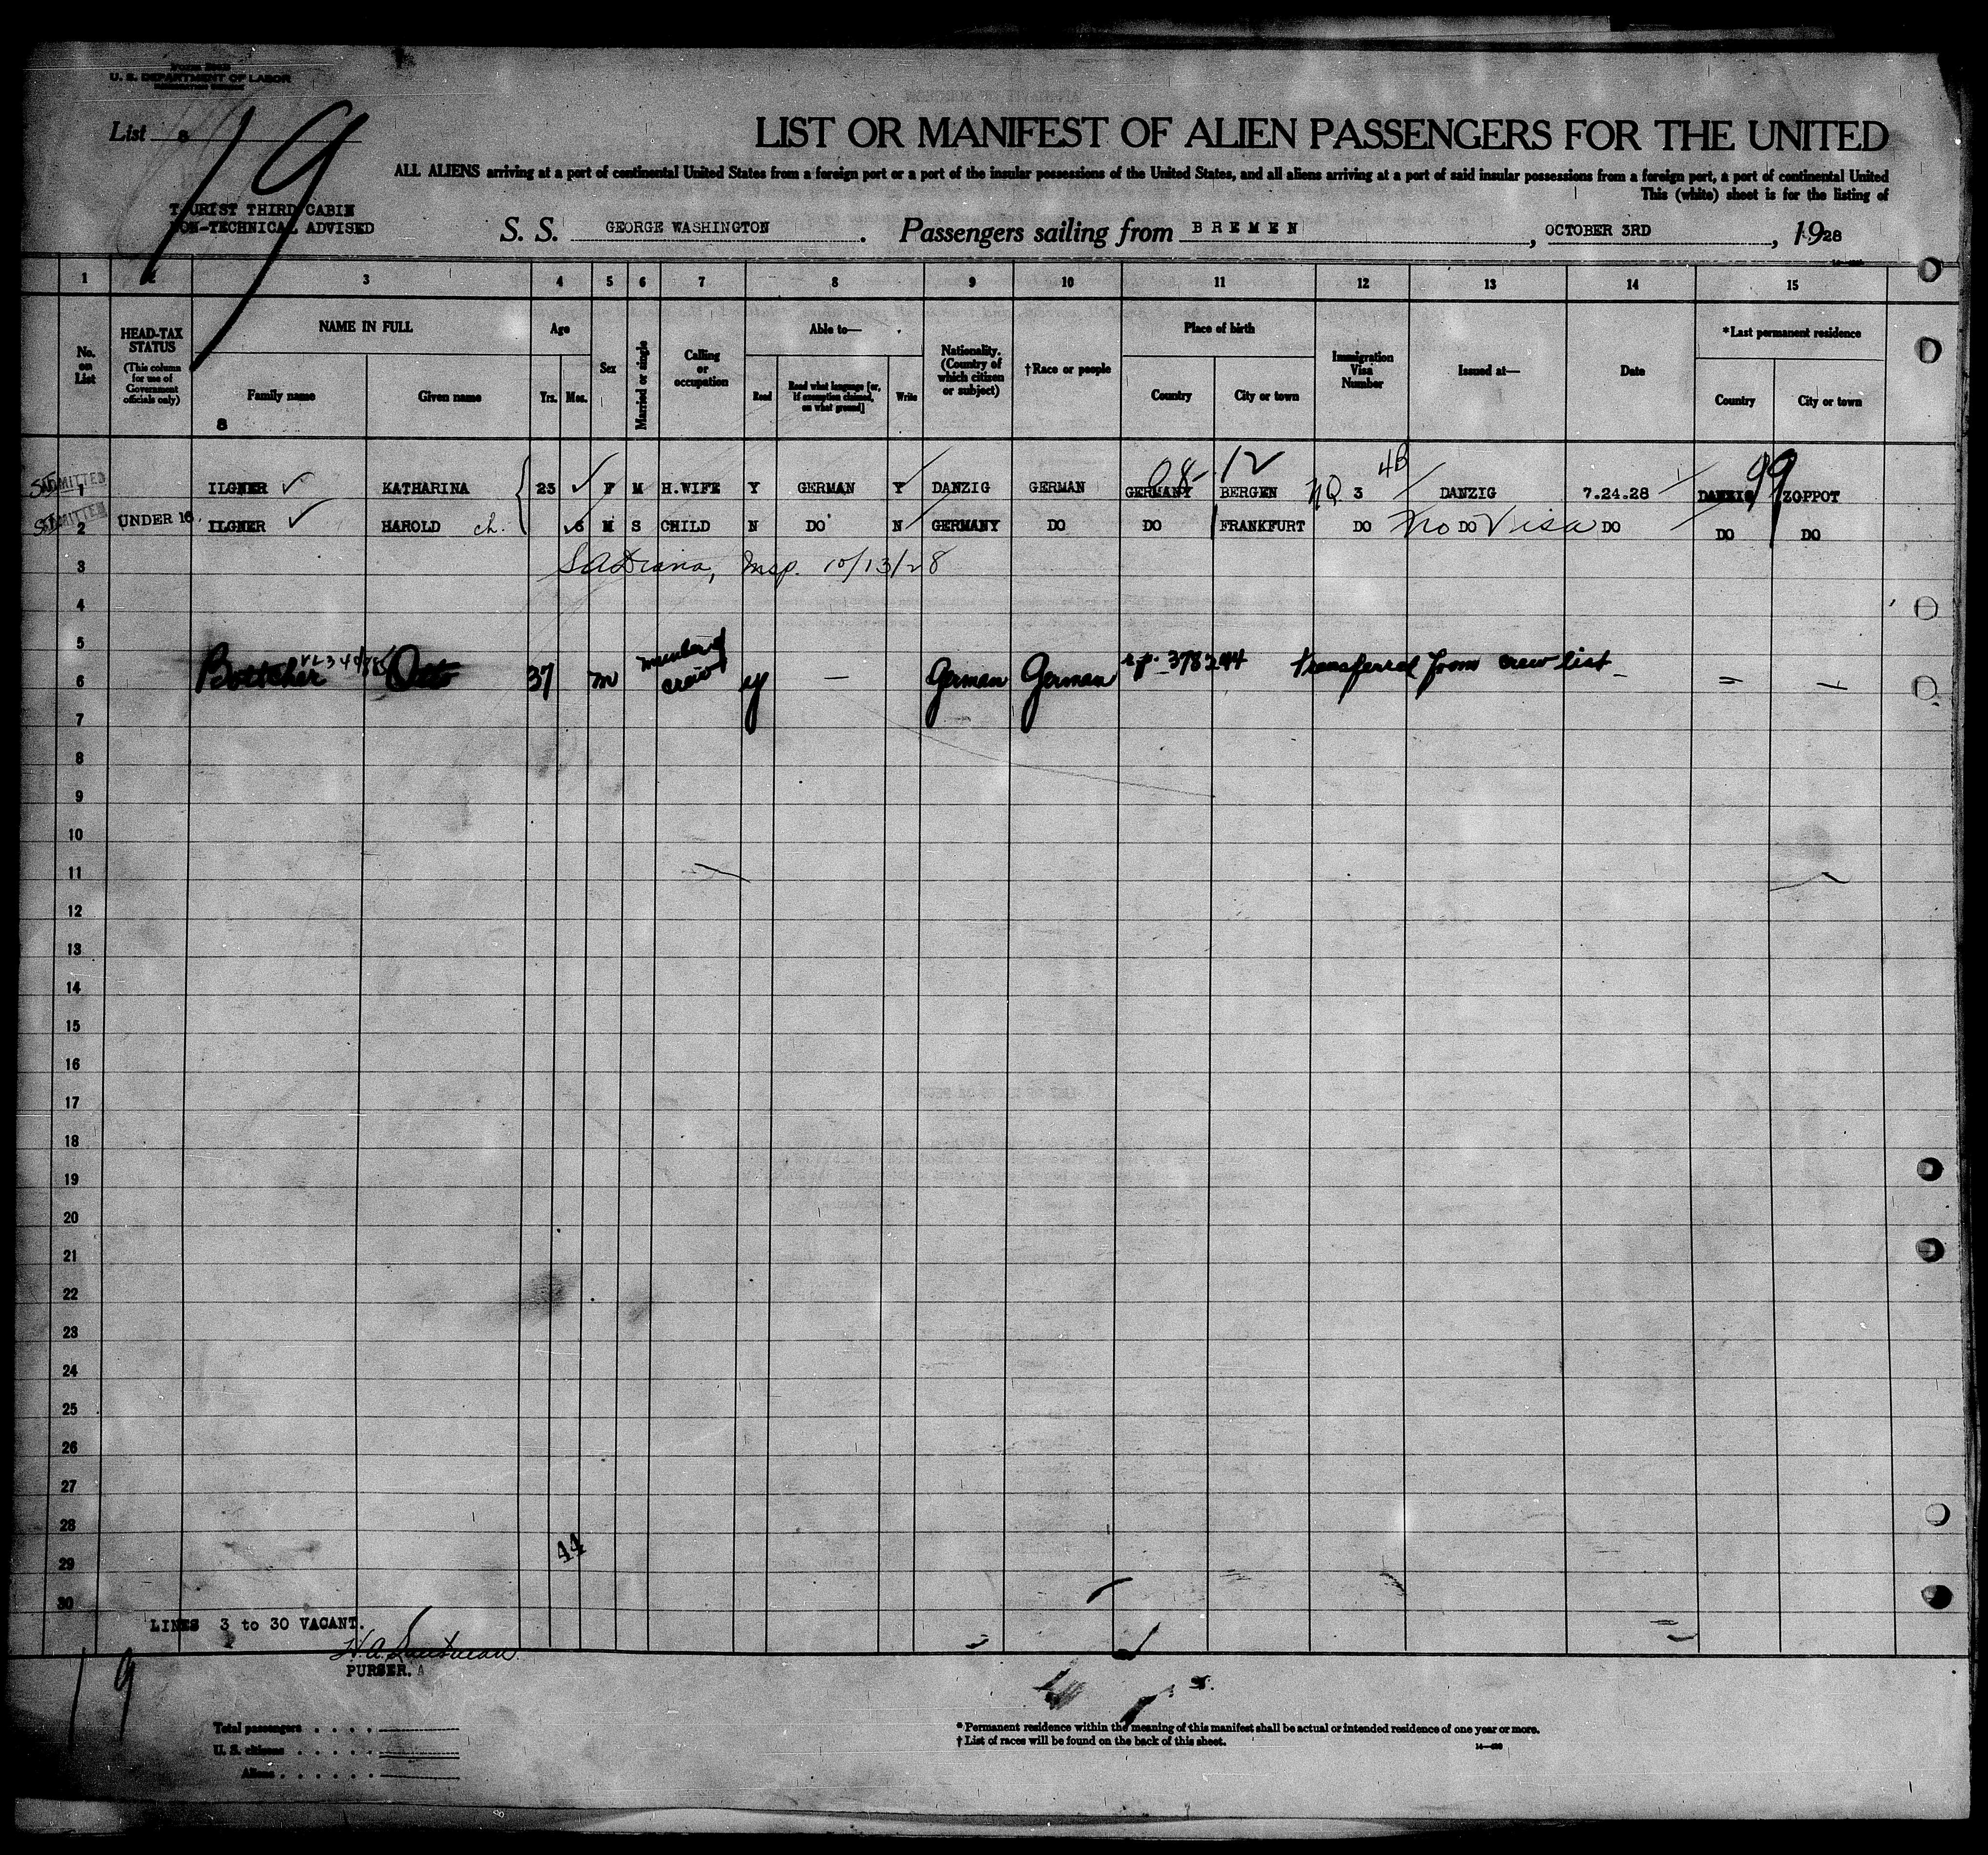 U. S. DEPARTMENT OF LABOR
List 8
19
LIST OR MANIFEST OF ALIEN PASSENGERS FOR THE UNITED
ALL ALIENS arriving at a port of continental United States from a foreign port or a port of the insular possessions of the United States, and all aliens arriving at a port of said insular possessions from a foreign port, a port of continental United
This (white) sheet is for the listing of
TOURIST THIRD CABIN
NON-TECHNICAL ADVISED
S. S. GEORGE WASHINGTON. Passengers sailing from BREMEN, OCTOBER 3RD, 1928
1 2 3 4 5 6 7 8 9 10 11 12 13 14 15
No. on List
HEAD-TAX STATUS (This column for use of Government officials only)
NAME IN FULL
Family name
Given name
8
Age
Yrs. Mos.
Sex
Married or single
Calling or occupation
Able to—
Read
Read what language [or, if exemption claimed, on what ground]
Write
Nationality. (Country of which citizen or subject)
†Race or people
Place of birth
Country
City or town
Immigration Visa Number
Issued at—
Date
*Last permanent residence
Country
City or town
08 12 4B 99
ADMITTED 1 ILGNER KATHARINA 23 F M H.WIFE Y GERMAN Y DANZIG GERMAN GERMANY BERGEN NQ 3 DANZIG 7.24.28 DANZIG ZOPPOT
ADMITTED 2 UNDER 16 ILGNER HAROLD ch. 6 M S CHILD N DO N GERMANY DO DO FRANKFURT DO DO no Visa DO DO DO
3 Insp. 10/13/28
4
5
6 Bottcher Otto 37 m member of crew y — German German 378244 transferred from crew list — = —
7
8
9
10
11
12
13
14
15
16
17
18
19
20
21
22
23
24
25
26
27
28
44
29
30
LINES 3 to 30 VACANT.
PURSER.
19
Total passengers
U. S. citizens
Aliens
*Permanent residence within the meaning of this manifest shall be actual or intended residence of one year or more.
†List of races will be found on the back of this sheet.